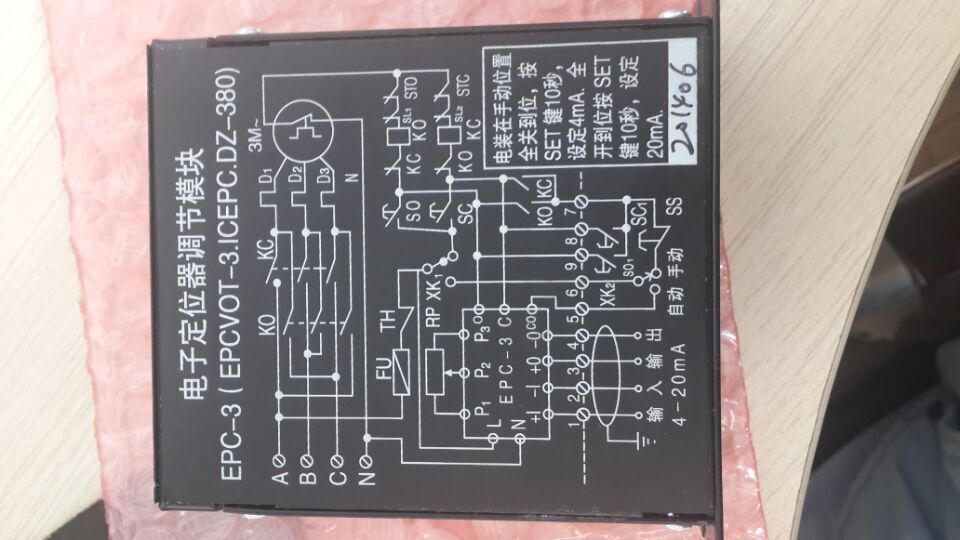 电子定位器调节模块
EPC-3(EPCVOT-3.ICEPC.DZ-380)
A
B
C
N
KO
KC
D1
D2
D3
N
3M~
FU
TH
RP
XK1
P1
P2
P3
L
N
EPC-3
O
C
CO
+I
-I
+O
-O
KC
KO
SL1
STO
KO
KC
SL2
STC
SO
SC
KO
KC
1
2
3
4
5
6
9
8
7
XK2
SO1
SC1
SS
输入
输出
4-20mA
自动
手动
电装在手动位置
全关到位，按
SET键10秒，
设定4mA. 全
开到位按SET
键10秒，设定
20mA.
201406